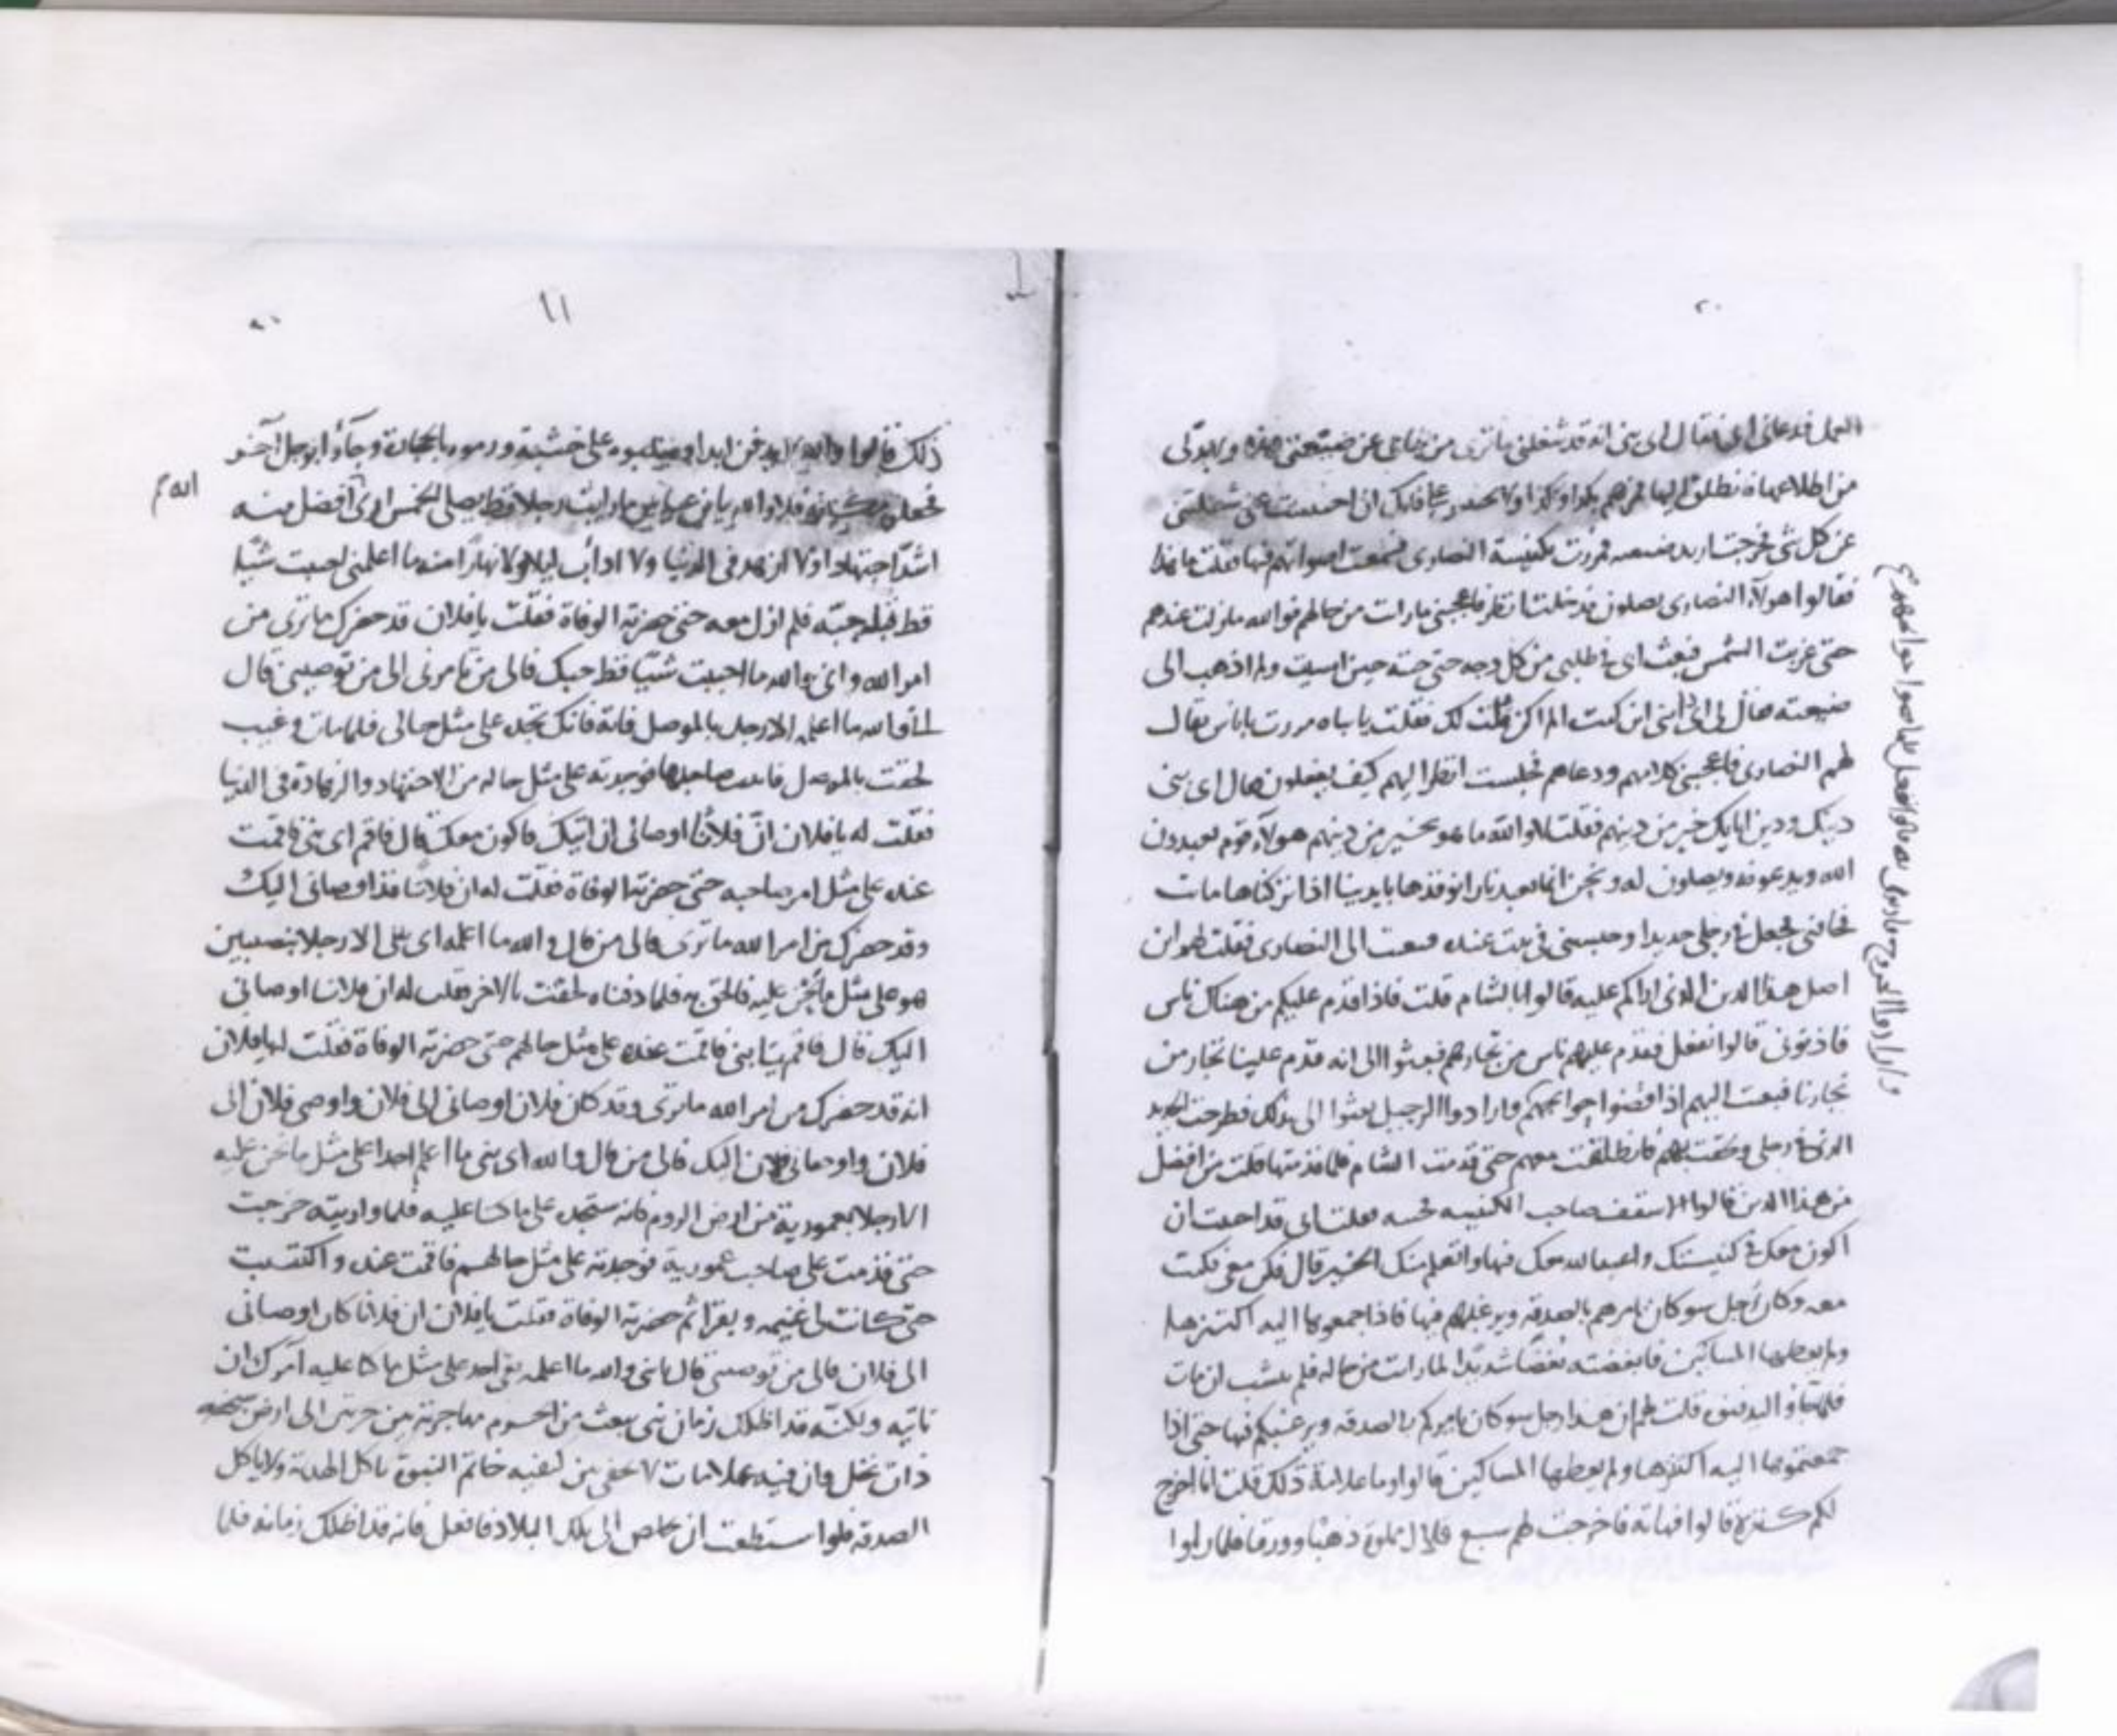 العمل فدعاني ابي فقال اي بني انه قد شغلني ما ترى من ضياعي عن ضيعتي هذه ولا بد لي
من اطلاعها فانطلق اليها فمرهم بكذا وكذا ولا تحتبس علي فانك ان احتبست عني شغلتني
عن كل شي فخرجت اريد ضيعته فمررت بكنيسة النصارى فسمعت اصواتهم فيها فقلت ما هذا
فقالوا هولاء النصارى يصلون فدخلت انظر فاعجبني ما رات من حالهم فوالله ما زلت عندهم
حتى غربت الشمس فبعث ابي في طلبي من كل وجه حتى جته حين امسيت ولم اذهب الى
ضيعته فقال لي ابي اي بني اين كنت الم اكن قلت لك فقلت يا باه مررت باناس يقال
لهم النصارى فاعجبني كلامهم ودعاهم فجلست انظر اليهم كيف يفعلون فقال اي بني
دينك ودين ابايك خير من دينهم فقلت لا والله ما هو بخير من دينهم هولاء قوم يعبدون
الله ويدعونه ويصلون له ونحن انما نعبد نارا نوقدها بايدينا اذا تركناها ماتت
فخافني فجعل في رجلي حديدا وحبسني في بيت عنده فبعثت الى النصارى فقلت لهم اين
اصل هذا الدين الذي اراكم عليه قالوا بالشام قلت فاذا قدم عليكم من هناك ناس
فاذنوني قالوا نفعل فقدم عليهم ناس من تجارهم فبعثوا الي انه قدم علينا تجار من
تجارنا فبعثت اليهم اذا قضوا حوايجهم وارادوا الرحيل بعثوا الي بذلك فطرحت الحديد
الذي في رجلي ولحقت بهم فانطلقت معهم حتى قدمت الشام فلما قدمتها قلت من افضل
من هذا الدين قالوا الاسقف صاحب الكنيسه فجيته فقلت اني قد احببت ان
اكون معك في كنيستك واعبد الله معك فيها واتعلم منك الخير قال فكن معي فكنت
معه وكان رجل سوء كان يامرهم بالصدقه ويرغبهم فيها فاذا جمعوها اليه اكتنزها
ولم يعطها المساكين فابغضته بغضا شديدا لما رات من حاله فلم ينشب ان مات
فلما جاوا ليدفنوه قلت لهم ان هذا رجل سوء كان يامركم بالصدقه ويرغبكم فيها حتى اذا
جمعتموها اليه اكتنزها ولم يعطها المساكين قالوا وما علامة ذلك قلت انا اخرج
لكم كنزه قالوا فهاته فاخرجت لهم سبع قلال مملوة ذهبا وورقا فلما راوا
ذلك قالوا والله لا يدفن ابدا فصلبوه على خشبة ورموه بالحجارة وجآؤا برجل آخر
فجعلوه مكانه فلا والله يا ابن عباس ما رايت رجلا قط يصلي الخمس ارى افضل منه
اشد اجتهادا ولا ازهد في الدنيا ولا ادأب ليلا ولا نهارا منه ما اعلمني احببت شيا
قط قبله حبه فلم ازل معه حتى حضرته الوفاة فقلت يا فلان قد حضرك ما ترى من
امر الله واني والله ما احببت شيا قط حبك فالى من تامرني الى من توصيني قال
والله ما اعلم الا رجل بالموصل فاته فانك تجده على مثل حالي فلما مات وغيب
لحقت بالموصل فاتيت صاحبها فوجدته على مثل حاله من الاجتهاد والزهادة في الدنيا
فقلت له يا فلان ان فلانا اوصاني ان اتيك فاكون معك قال فاقم اي بني فاقمت
عنده على مثل امر صاحبه حتى حضرته الوفاة فقلت له ان فلانا قد اوصاني اليك
وقد حضرك من امر الله ما ترى فالى من قال والله ما اعلمه اي بني الا رجلا بنصيبين
هو على مثل ما نحن عليه فالحق به فلما دفناه لحقت بالاخر فقلت له ان فلانا اوصاني
اليك قال فاقم يا بني فاقمت عنده على مثل حالهم حتى حضرته الوفاة فقلت له يا فلان
انه قد حضرك من امر الله ما ترى وقد كان فلان اوصاني الى فلان واوصى فلان الى
فلان واوصاني فلان اليك فالى من قال والله اي بني ما اعلم احدا على مثل ما نحن عليه
الا رجلا بعمورية من ارض الروم فانه ستجده على ما كنا عليه فلما واريته خرجت
حتى قدمت على صاحب عمورية فوجدته على مثل حالهم فاقمت عنده واكتسبت
حتى كانت لي غنيمه وبقر اثم حضرته الوفاة فقلت يا فلان ان فلانا كان اوصاني
الى فلان فالى من توصيني قال يا بني والله ما اعلمه بقي احد على مثل ما كنا عليه آمرك ان
تاتيه ولكنه قد اظلك زمان نبي يبعث من الحرم مهاجرته بين حرتين الى ارض سبخه
ذات نخل وان فيه علامات لا تخفى بين كتفيه خاتم النبوة ياكل الهدية ولا ياكل
الصدقه فلو استطعت ان تخلص الى تلك البلاد فافعل فانه قد اظلك زمانه فلما
١١